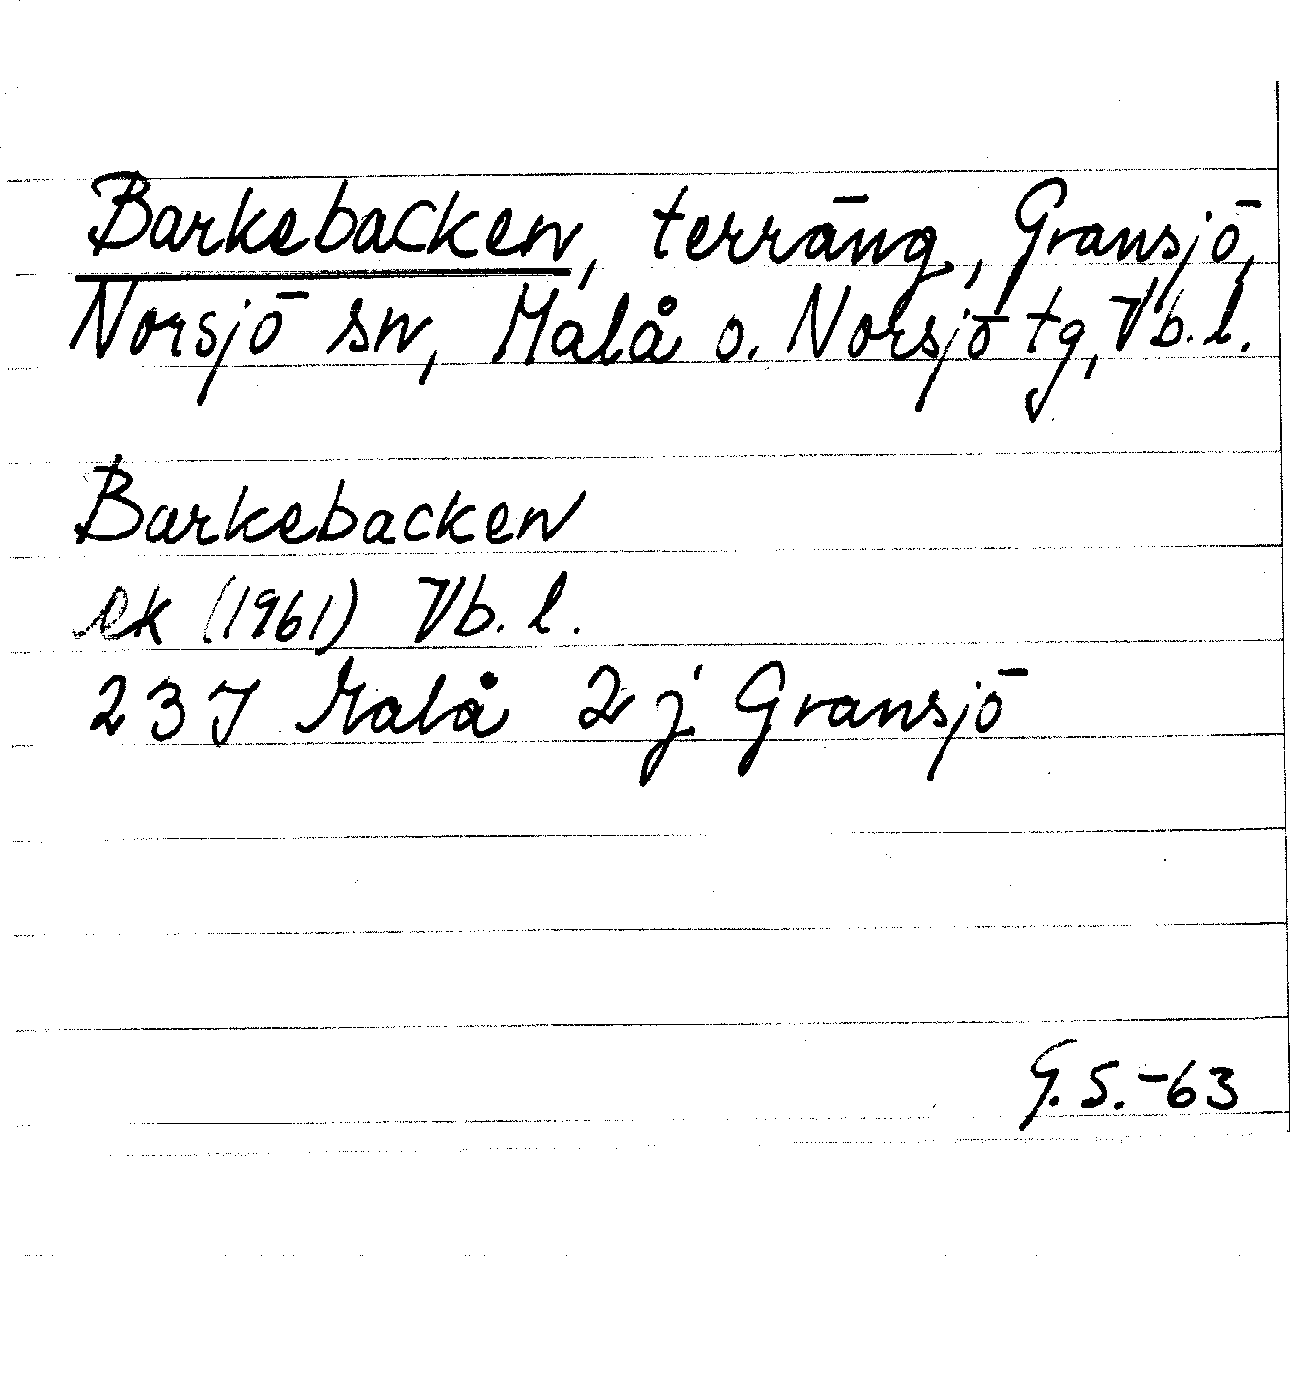 Barkebacken, terräng, Gransjö,
Norsjö sn, Malå o. Norsjö tg, Vb. l.
Barkebacken
ek (1961) Vb. l.
23J Malå 2j Gransjö
G.S.-63